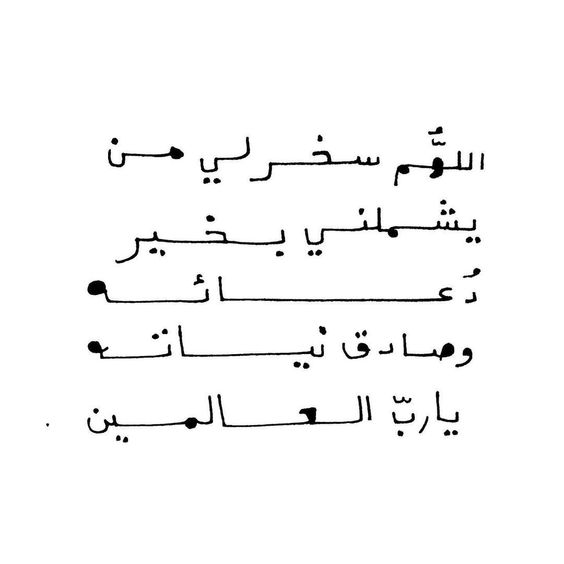 اللهُّم سخر لي من
يشملني بخير
دُعائه
وصادق نياته
ياربّ العالمين